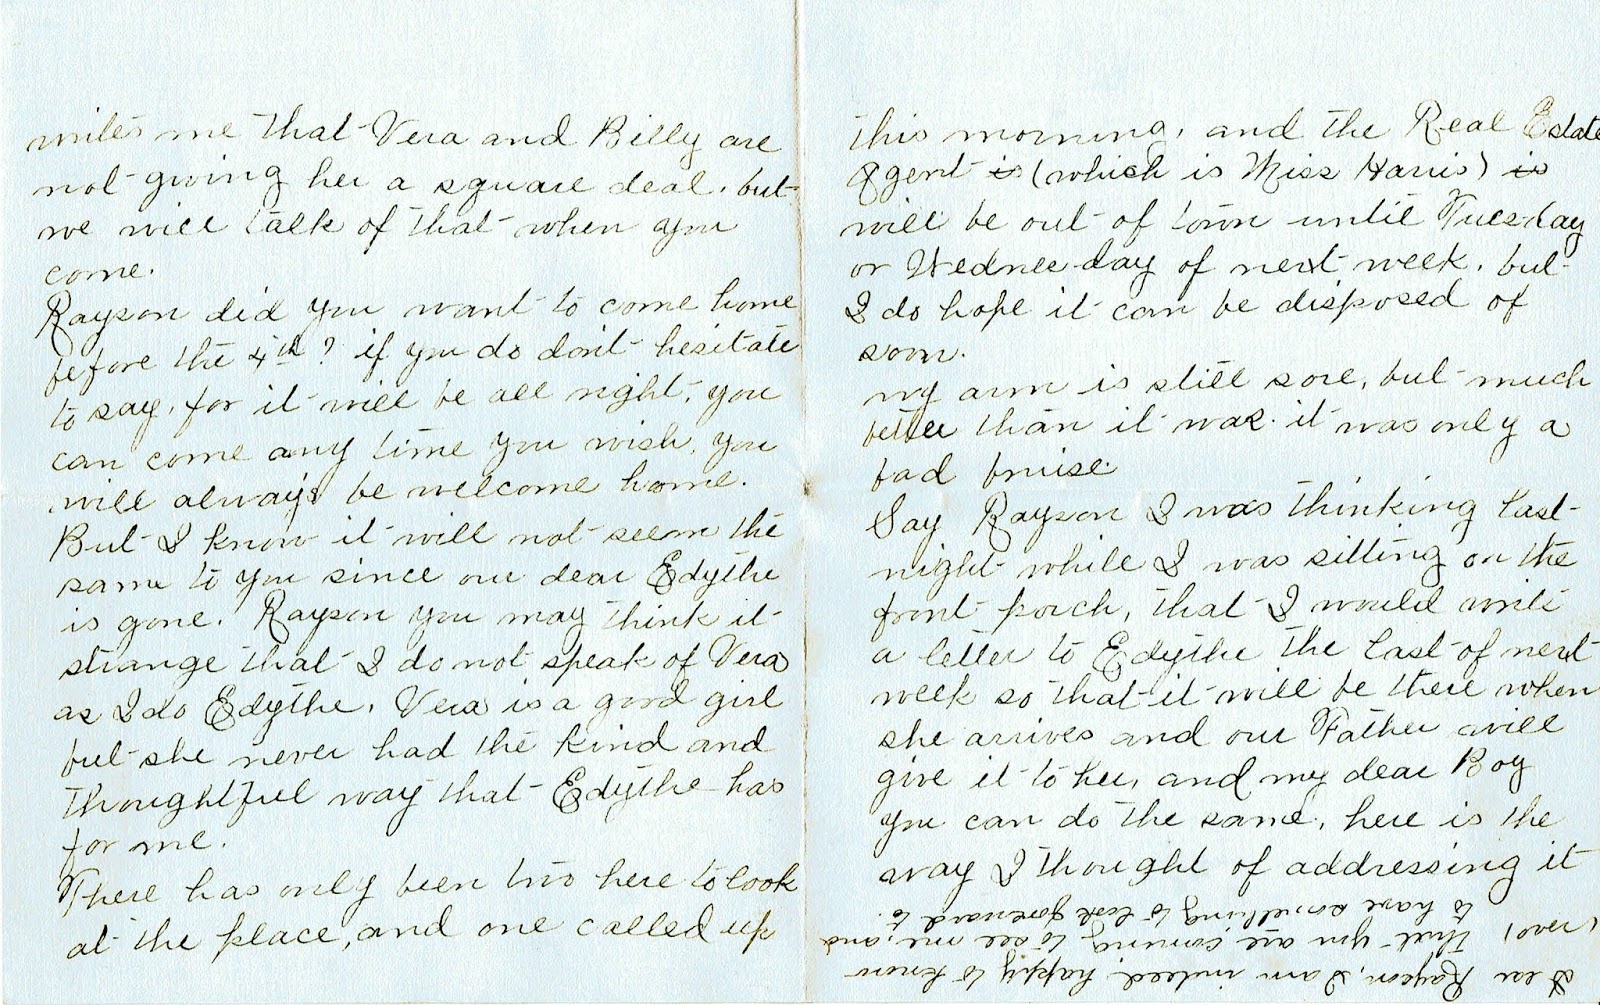 writes me that Vera and Billy are
not giving her a square deal. but
we will talk of that when you
come.
Rayson did you want to come home
before the 4th? if you do don't hesitate
to say, for it will be all right, you
can come any time you wish, you
will always be welcome home.
But I know it will not seem the
same to you since our dear Edythe
is gone. Rayson you may think it
strange that I do not speak of Vera
as I do Edythe. Vera is a good girl
but she never had the kind and
thoughtful way that Edythe has
for me.
There has only been two here to look
at the place, and one called up
this morning, and the Real Estate
Agent is (which is Miss Harris) is
will be out of town until Tuesday
or Wednesday of next week. but
I do hope it can be disposed of
soon.
my arm is still sore, but much
better than it was. it was only a
bad bruise.
Say Rayson I was thinking last
night while I was sitting on the
front porch, that I would write
a letter to Edythe the last of next
week so that it will be there when
she arrives and our Father will
give it to her, and my dear Boy
you can do the same, here is the
way I thought of addressing it
(over)
Dear Rayson, I am indeed happy to know
that you are coming to see me, and
to have something to look forward to.